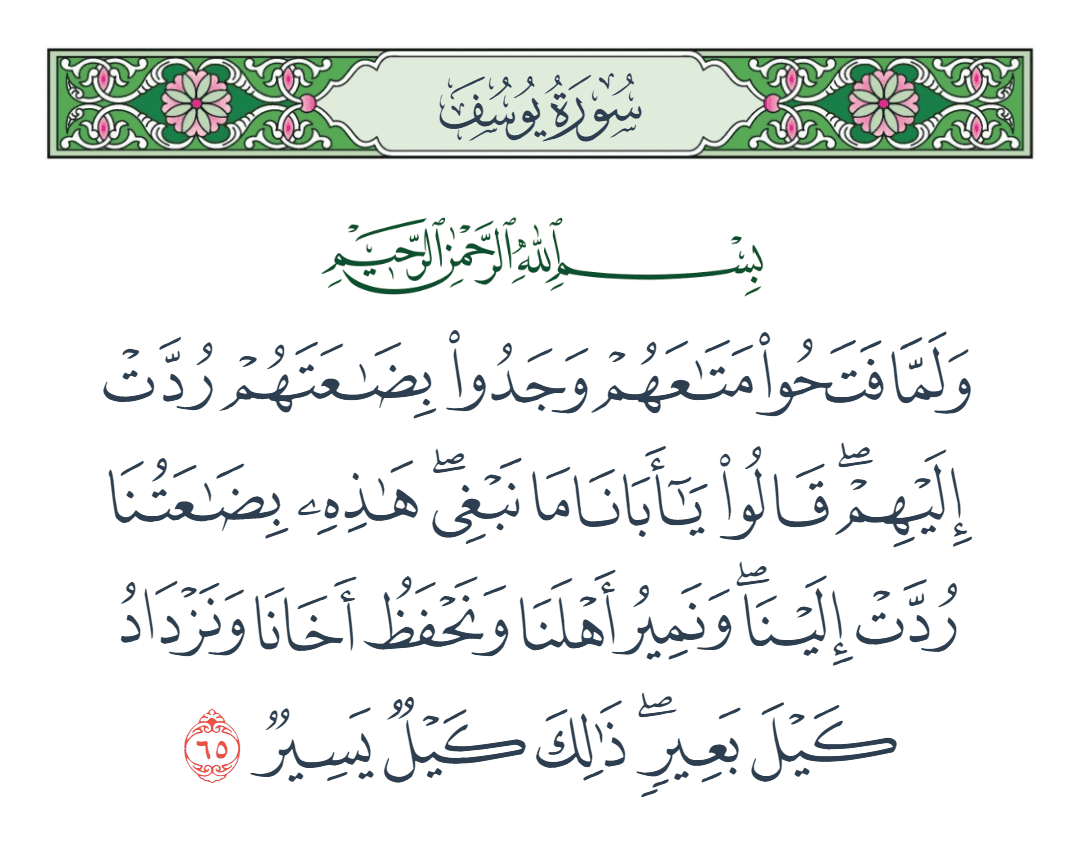 سُورَةُ يُوسُفَ
بِسْمِ ٱللَّهِ ٱلرَّحْمَٰنِ ٱلرَّحِيمِ
وَلَمَّا فَتَحُوا۟ مَتَـٰعَهُمْ وَجَدُوا۟ بِضَـٰعَتَهُمْ رُدَّتْ
إِلَيْهِمْ ۖ قَالُوا۟ يَـٰٓأَبَانَا مَا نَبْغِى ۖ هَـٰذِهِۦ بِضَـٰعَتُنَا
رُدَّتْ إِلَيْنَا ۖ وَنَمِيرُ أَهْلَنَا وَنَحْفَظُ أَخَانَا وَنَزْدَادُ
كَيْلَ بَعِيرٍ ۖ ذَٰلِكَ كَيْلٌ يَسِيرٌ ٦٥